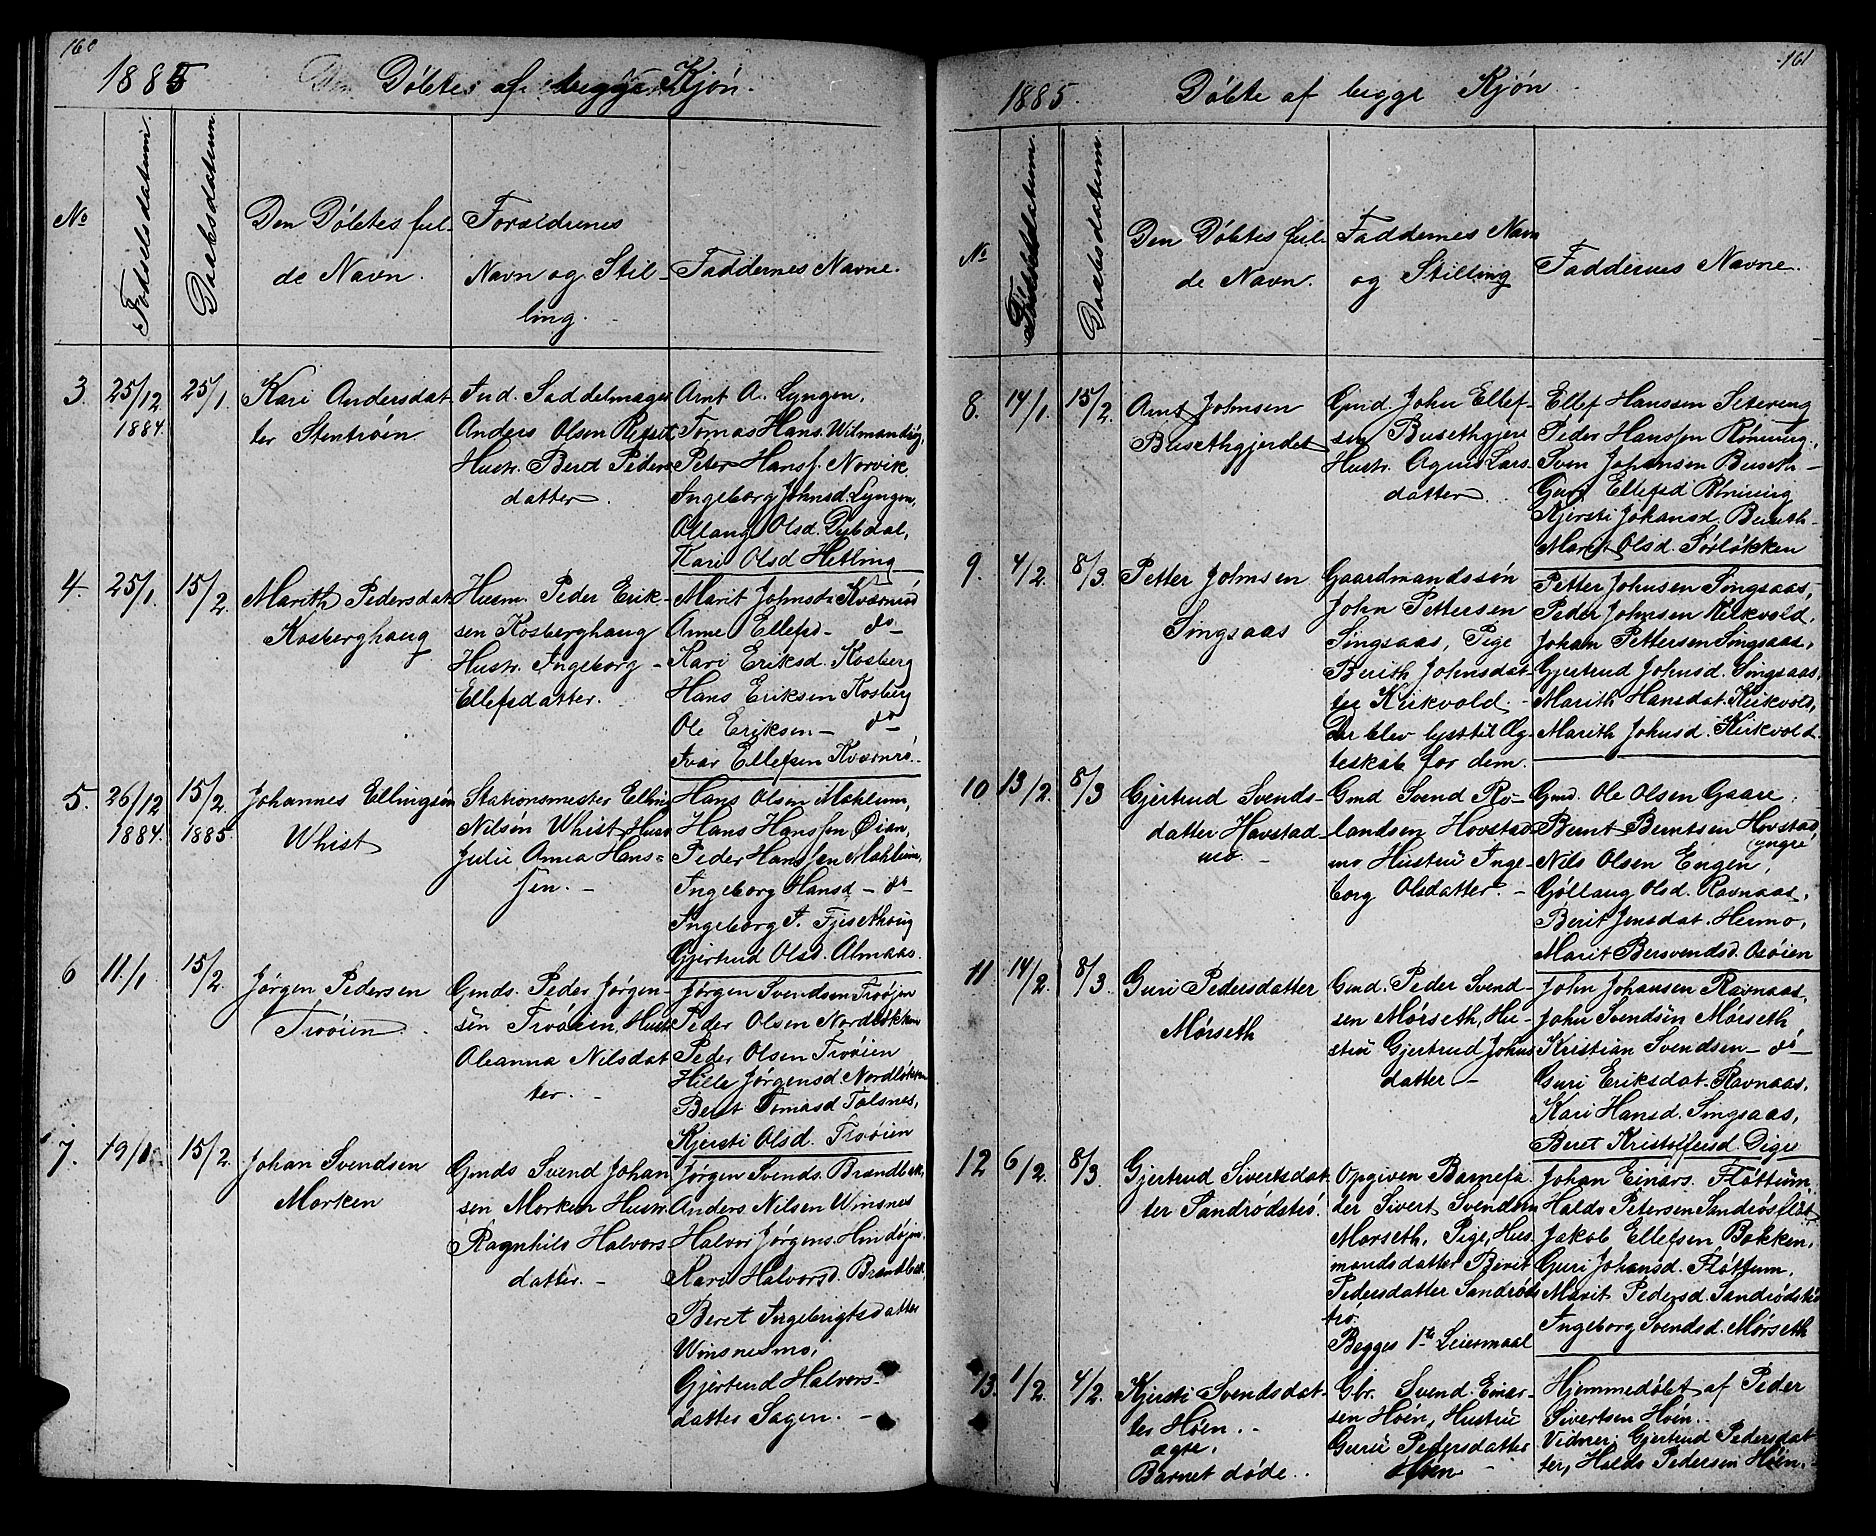 160
1885 Døbte af begge Kjøn.
No
Fødselsdatum.
Daabsdatum.
Den Døbtes ful-
de Navn.
Forældrenes
Navn og Stil-
ling.
Faddernes Navne.
3. 25/12 1884. 25/1.
Kari Andersdat-
ter Stentrøen
Ind. Saddelmager
Anders Olsen
Hustr. Berit Peders-
datter.
Arnt A. Lyngen,
Tomas Hans. Wilmandsøg,
Peter Hansf. Norvik
Ingeborg Johnsd. Lyngen,
Ollaug Olsd. Dybdal,
Kari Olsd Hetling
4. 25/1. 15/2.
Marith Pedersdat
Kosberghaug
Husm. Peder Erik-
sen Kosberghaug
Hustr. Ingeborg
Ellefsdatter.
Marit Johnsd. Kvernrø
Anne Ellefsd - do -
Kari Eriksd. Kosberg
Hans Eriksen Kosberg
Ole Eriksen - do
Ivar Ellefsen Kvernrø.
5. 26/12 1884. 15/2. 1885.
Johannes Ellingsøn
Whist
Stationsmester Elling
Nilsøn Whist Hustr
Julie Anna Hans=
sen. -
Hans Olsen Mohlum,
Hans Hanssen Øian,
Peder Hanssen Mohlum,
Ingeborg Hansd - do -
Ingeborg T. Fjesethaug
Gjertrud Olsd. Almaas.
6 11/1 15/2.
Jørgen Pedersen
Trøøien.
Gmds. Peder Jørgen-
sen Trøøien, Hustr
Oleanna Nilsdat
ter. -
Jørgen Svendsen Trøøjen
Peder Olsen Nordløkken
Peder Olsen Trøøien
Hille Jørgensd. Nordløkken
Beret Tomasd Talsnes,
Kjersti Olsd. Trøøien
7. 19/1 15/2.
Johan Svendsen
Morken
Gmds Svend Johan
sen Morken Hustr
Ragnhild Halvors-
datter. -
Jørgen Svends. Brandbek,
Anders Nilsen Winsnes
Halvor Jørgens. Hindøjen,
Kari Halvorsd. Brandbek,
Beret Ingebrigtsdatter
Winsnesmo,
Gjertrud Halvors-
datter Sagen. -
161
1885. Døbte af begge Kjøn.
No
Fødselsdatum.
Daabsdatum.
Den Døbtes ful-
de Navn.
Faddernes Navn
og Stilling
Faddernes Navne.
8. 14/1. 15/2.
Arnt Johnsen
Busethgjerdet
Gmd. John Ellef-
sen Busethgjere
Hustr. Agnes Lars-
datter.
Ellef Hanssen Setereng
Peder Hanssen Rønning,
Sven Johansen Buseth -
Guri Ellefsd Rønning
Kjersti Johansd. Buseth -
Marit Olsd. Sørløkken
9. 4/2. 8/3.
Petter Johnsen
Singsaas
Gaardmandssøn
John Pettersen
Singsaas, Pige
Berith Johnsdat-
ter Kirkvold. -
Der blev lyst til Æg-
teskab for dem.
Petter Johnsen Singsaas,
Peder Johnsen Kirkvold,
Johan Pettersen Singsaas,
Gjertrud Johnsd. Singsaas,
Marith Hansdat. Kirkvold,
Marith Johnsd. Kirkvold.
10 13/2. 8/3
Gjertrud Svends-
datter Hovstad-
mo -
Gmd Svend Ro-
landsen Hovstad-
mo Hustrü Inge-
borg Olsdatter. -
Gmd. Ole Olsen Gaare,
Bernt Berntsen Hovstad,
yngre
Nils Olsen Engen,
Gøllaug Olsd. Ravnaas,
Berit Jensdat. Hermo,
Marit Bersvendsd. Osøien
11 14/2. 8/3.
Guri Pedersdatter
Mørseth
Gmd. Peder Svend-
sen Mørseth, Hu-
strü Gjertrud Johns
datter -
John Johansen Ravnaas,
John Svendsen Mørseth
Kristian Svendsen - do -
Guri Eriksdat. Ravnaas,
Kari Hansd. Singsaas,
Beret Kristoffersd. Dige
12 6/2. 8/3
Gjertrud Sivertsdat-
ter Sandrødstrø.
Opgiven Barnefa-
der Sivert Svendsen
Mørseth, Pige, Hus-
mandsdatter Berit
Pedersdatter Sandrøds
trø.
Begges 1te Leiermaal
Johan Einars. Fløttum,
Haldo Petersen Sandrøsflot
Jakob Ellefsen Bakken,
Guri Johansd. Fløttum,
Marit Pedersd. Sandrødstrø
Ingeborg Svendsd. Mørseth
13. 1/2. 4/2.
Kjersti Svendsdat-
ter Høen. -
Barnet døde.
Gbr. Svend Einar-
sen Høen, Hustrü
Guru Pedersdatter
Høen -
Hjemmedøbt af Peder
Sivertsen Høen.
Vidner: Gjertrud Pedersdat
ter, Haldo Pedersen Høen. -